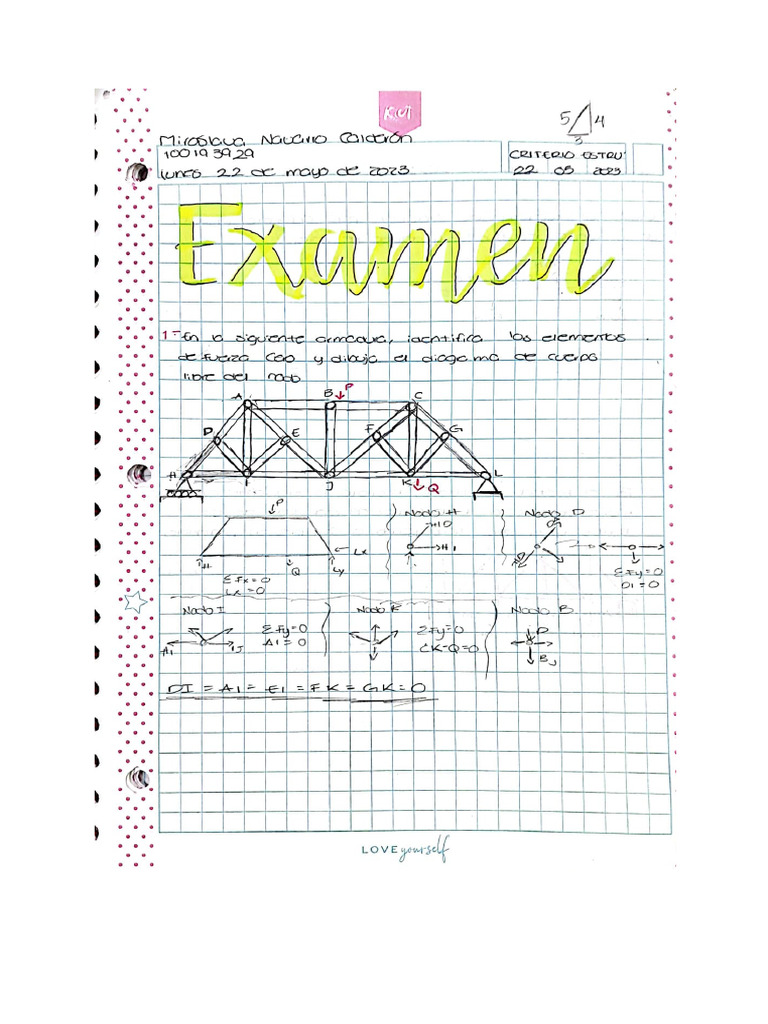 KUT
5 4
3
Miroslava Navarro Calderón
100193929
CRITERIO ESTRU
lunes 22 de mayo de 2023
22 05 2023
Examen
1- En la siguiente armadura, identifica los elementos
de fuerza cero y dibuja el diagrama de cuerpo
libre del nodo
A B P C
D E F G
H I J K Q L
P
H Q Lx Ly
ΣFx=0
Lx=0
Nodo H
HD
HI
Nodo D
ΣFy=0
DI=0
Nodo I
HI IJ
ΣFy=0
AI=0
Nodo K
ΣFy=0
CK-Q=0
Nodo B
P
BJ
DI = AI = EI = FK = GK = 0
LOVE yourself